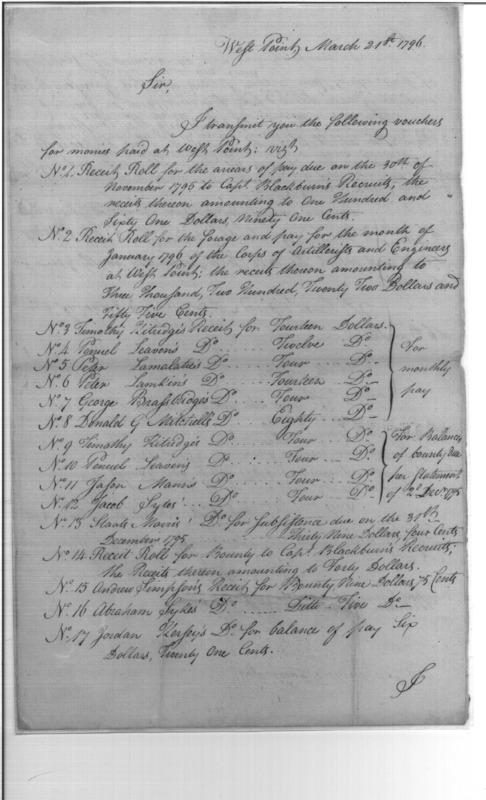 West Point, March 21st 1796.
Sir,
I transmit you the following vouchers
for monies paid at West Point: vizt
No. 1. Receit Roll for the arears of pay due on the 30th of
November 1795 to Capt. Blackburn's Recruits, the
receits thereon amounting to One Hundred and
Sixty One Dollars Ninety One Cents.
No. 2 Receit Roll for the forage and pay for the month of
January 1796 of the Corps of Artillerists and Engineers
at West Point; the receits thereon amounting to
Three Thousand, Two Hundred, Twenty Two Dollars and
Fifty Five Cents.
No 3 Timothy Kitridge's Receit for Fourteen Dollars.
No. 4 Penuel Seavens Do. . . . Twelve Do
No 5 Peter Lamalathes Do. . . . Four . . Do
No 6 Peter Lamkin's Do . . . . Fourteen Do
No. 7 George Do . . . . Four . . Do
No. 8 Donald G. Mitchell's Do . . Eighty . . Do
For
monthly
pay
No. 9 Timothy Kitridge's Do . . . Four . . Do
No. 10 Penuel Seavens Do . . . . Four . . Do
No. 11 Jason Manns Do . . . . Four . . Do
No. 12 Jacob Sykes' . . Do . . . . Four . . Do
For Balance
of bounty
per Statement
of 2d Decr. 1795
No. 13 Staats Morris' Do for subsistance due on the 31st
December 1795 Thirty Nine Dollars, four Cents
No. 14 Receit Roll for Bounty to Capt. Blackburn's Recruits,
the Receits thereon amounting to Forty Dollars.
No. 15 Andrew Simpson's Receit for Bounty Nine Dollars, 75 Cents
No. 16 Abraham Sykes' Do . . . . . Ditto . Five Do
No. 17 Jordan Do for balance of pay Six
Dollars, Twenty One Cents.
I